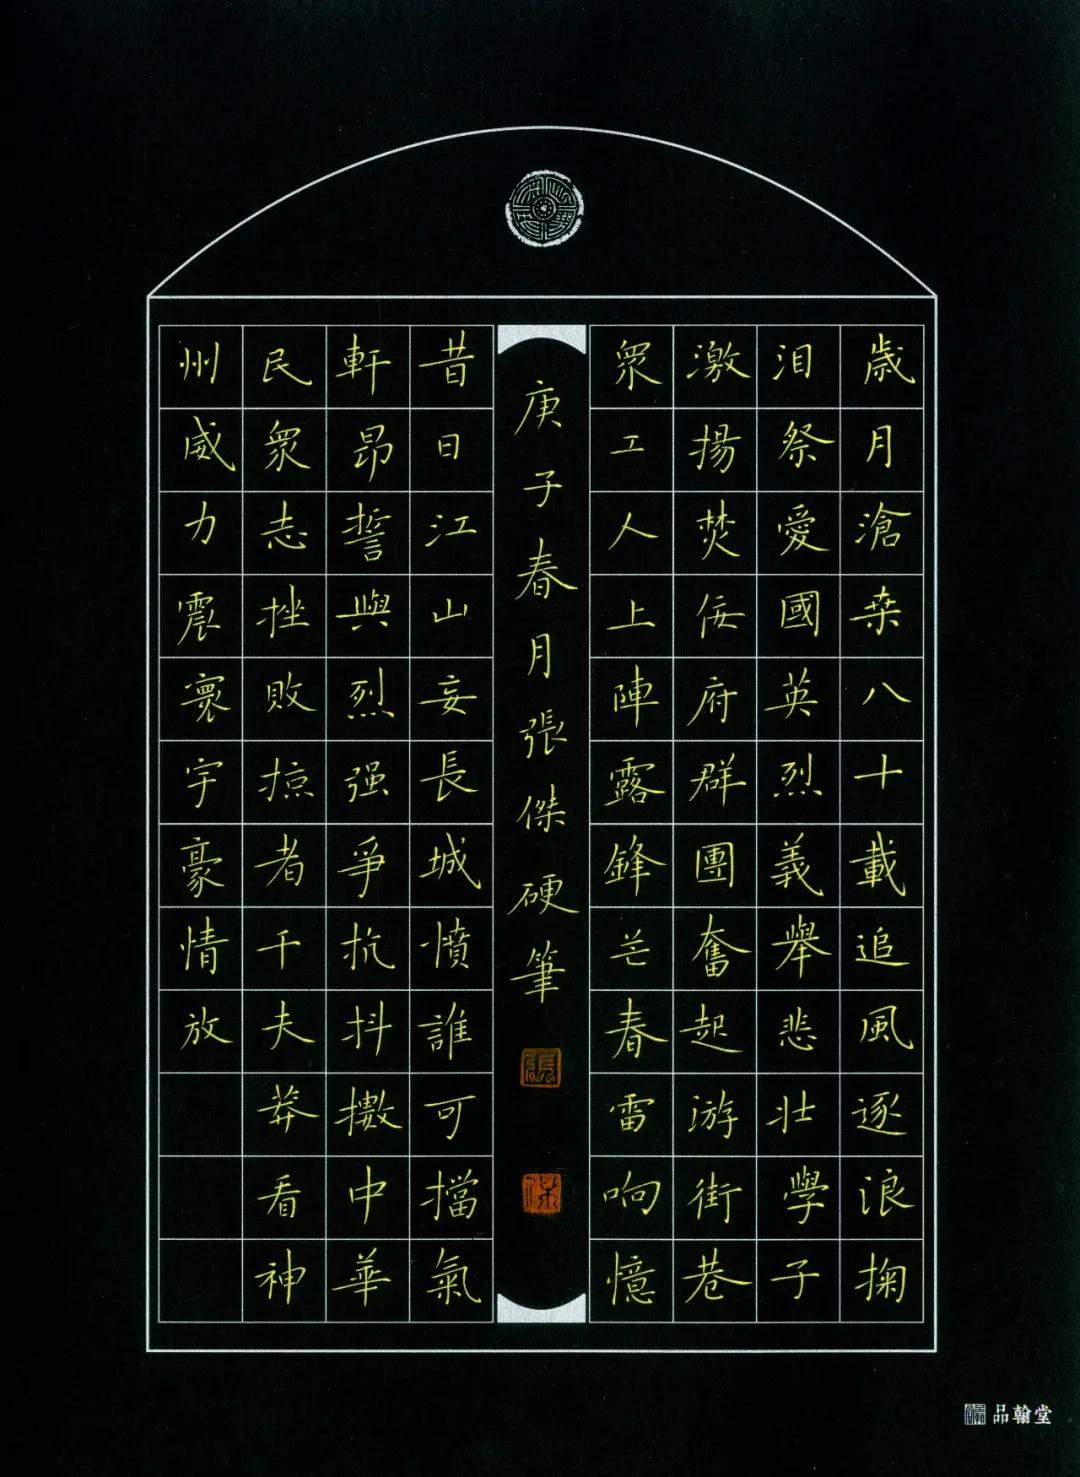 歲月滄桒八十載追風逐浪掬
泪祭愛國英烈義舉悲壯學子
激揚焚佞府群團奮起游街巷
眾工人上陣露鋒芒春雷响憶
庚子春月張傑硬筆
張
昔日江山妄長城憤誰可擋氣
軒昂誓與烈强爭抗抖擻中華
民眾志挫敗掠者千夫莽看神
州威力震寰宇豪情放
品翰堂